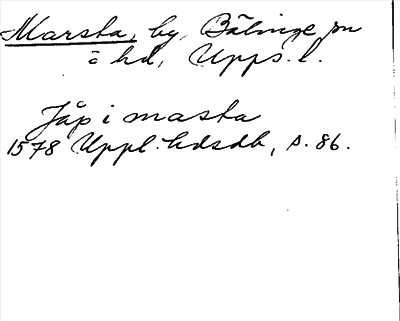 Marsta, by, Bälinge sn
o hd, Upps. l.
Jåp i masta
1578 Uppl. hdsdb, s. 86.